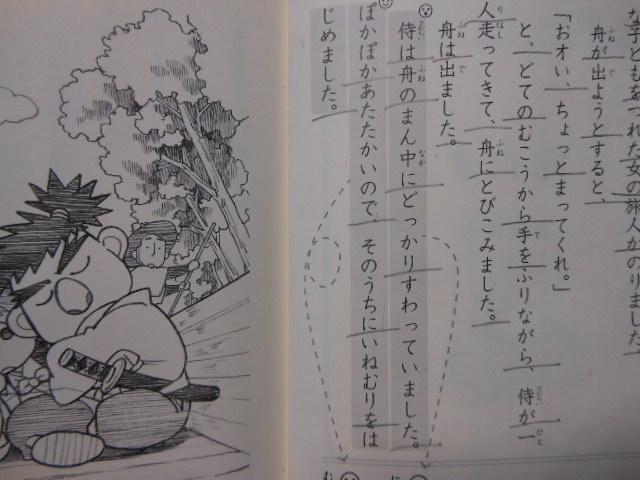 な子どもをつれた女の旅人がのりました
舟が出ようとすると、
「おオい、ちょっとまってくれ。」
と、どてのむこうから手をふりながら、侍が一
人走ってきて、舟にとびこみました。
舟は出ました。
侍は舟のまん中にどっかりすわっていました。
ぽかぽかあたたかいので、そのうちにいねむりをは
じめました。